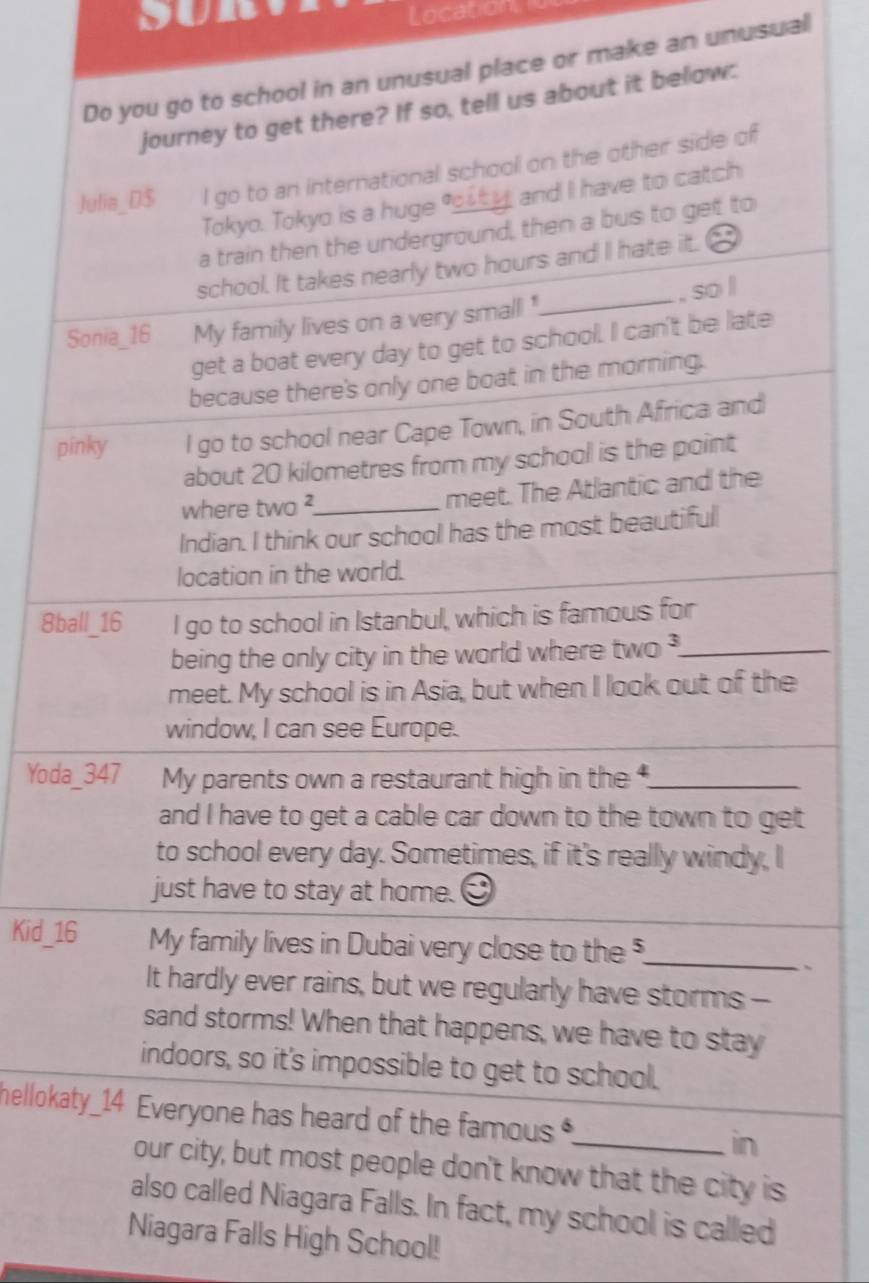 Location,
Do you go to school in an unusual place or make an unusual
journey to get there? If so, tell us about it below:
Julia_D$ I go to an international school on the other side of
Tokyo. Tokyo is a huge ⁰city and I have to catch
a train then the underground, then a bus to get to
school. It takes nearly two hours and I hate it. ☹
Sonia_16 My family lives on a very small ¹__________, so I
get a boat every day to get to school. I can't be late
because there's only one boat in the morning.
pinky I go to school near Cape Town, in South Africa and
about 20 kilometres from my school is the point
where two ²__________ meet. The Atlantic and the
Indian. I think our school has the most beautiful
location in the world.
8ball_16 I go to school in Istanbul, which is famous for
being the only city in the world where two ³__________
meet. My school is in Asia, but when I look out of the
window, I can see Europe.
Yoda_347 My parents own a restaurant high in the ⁴__________
and I have to get a cable car down to the town to get
to school every day. Sometimes, if it's really windy, I
just have to stay at home. ☺
Kid_16 My family lives in Dubai very close to the ⁵__________.
It hardly ever rains, but we regularly have storms –
sand storms! When that happens, we have to stay
indoors, so it's impossible to get to school.
hellokaty_14 Everyone has heard of the famous ⁶__________ in
our city, but most people don't know that the city is
also called Niagara Falls. In fact, my school is called
Niagara Falls High School!